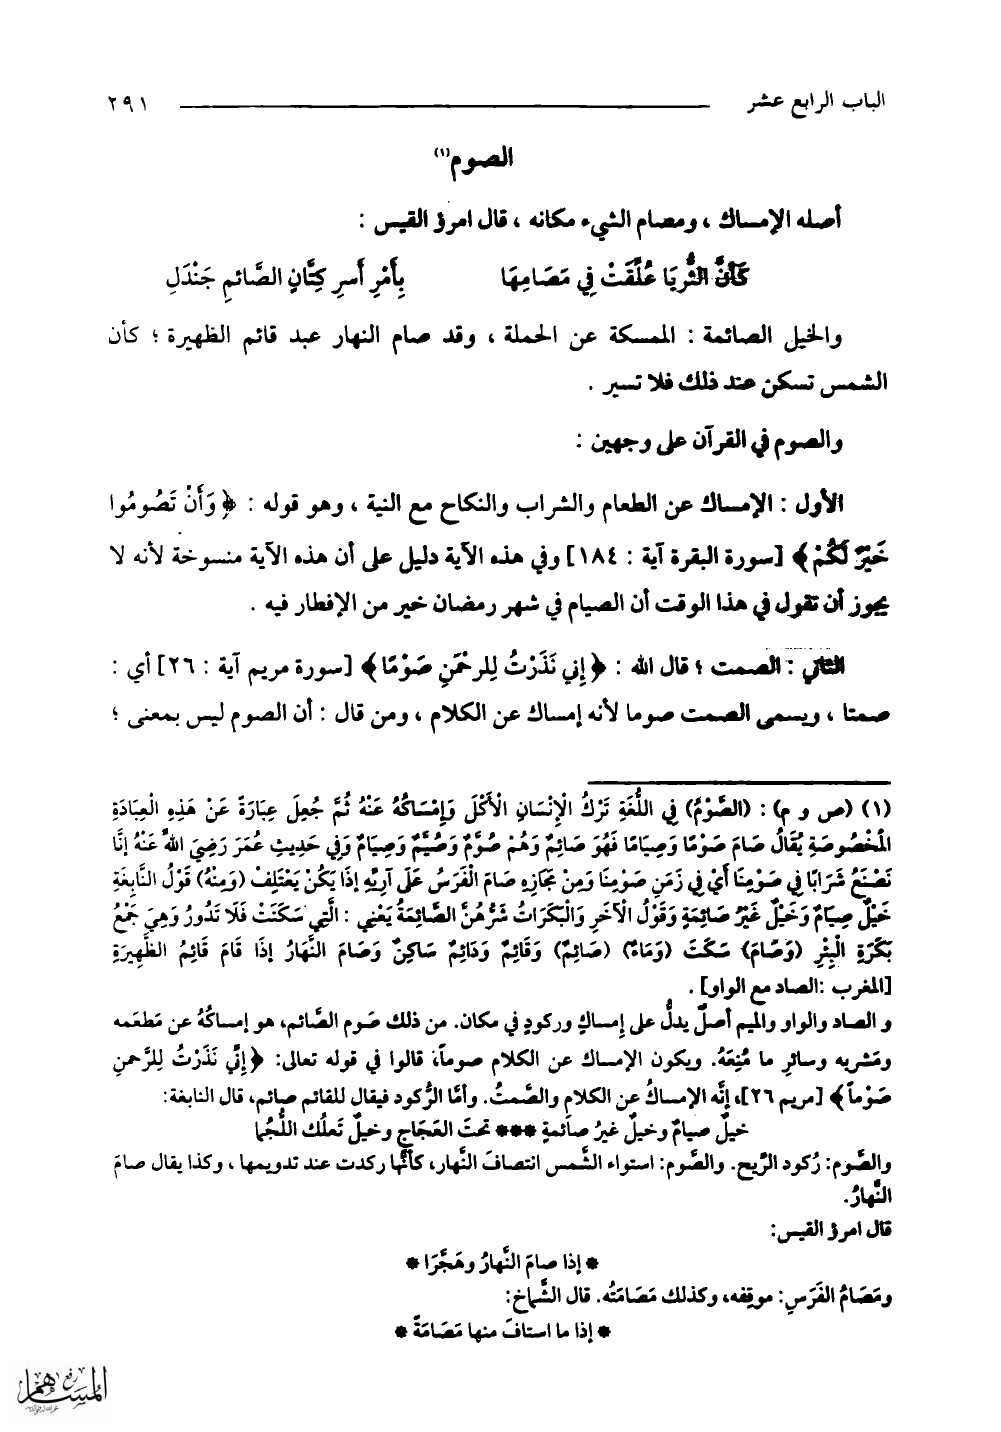 الباب الرابع عشر ٢٩١
الصوم(١)
أصله الإمساك ، ومصام الشيء مكانه ، قال امرؤ القيس :
كَأَنَّ الثُّرَيَا عُلِّقَتْ فِي مَصَامِهَا بِأَمْرِ أَسرِ كِتَّانٍ الصَّائمِ جَنْدَلِ
والخيل الصائمة : الممسكة عن الحملة ، وقد صام النهار عبد قائم الظهيرة ؛ كأن
الشمس تسكن عند ذلك فلا تسير .
والصوم في القرآن على وجهين :
الأول : الإمساك عن الطعام والشراب والنكاح مع النية ، وهو قوله : ﴿ وَأَنْ تَصُومُوا
خَيْرٌ لَكُمْ ﴾ [سورة البقرة آية : ١٨٤] وفي هذه الآية دليل على أن هذه الآية منسوخة لأنه لا
يجوز أن تقول في هذا الوقت أن الصيام في شهر رمضان خير من الإفطار فيه .
الثاني : الصمت ؛ قال الله : ﴿ إِنِي نَذَرْتُ لِلرحْمَنِ صَوْمًا ﴾ [سورة مريم آية : ٢٦] أي :
صمتا ، ويسمى الصمت صوما لأنه إمساك عن الكلام ، ومن قال : أن الصوم ليس بمعنى ؛
(١) (ص و م) : (الصَّوْمُ) فِي اللُّغَةِ تَرْكُ الْإِنْسَانِ الْأَكْلَ وَإِمْسَاكُهُ عَنْهُ ثُمَّ جُعِلَ عِبَارَةً عَنْ هَذِهِ الْعِبَادَةِ
الْمَخْصُوصَةِ يُقَالُ صَامَ صَوْمًا وَصِيَامًا فَهُوَ صَائِمٌ وَهُمْ صُوَّمٌ وَصُيَّمٌ وَصِيَامٌ وَفِي حَدِيثِ عُمَرَ رَضِيَ اللهُ عَنْهُ إنَّا
نَصْنَعُ شَرَابًا فِي صَوْمِنَا أَيْ فِي زَمَنِ صَوْمِنَا وَمِنْ مَجَازِهِ صَامَ الْفَرَسُ عَلَى آرِيِّهِ إذَا يَكُنْ يَعْتَلِفْ (وَمِنْهُ) قَوْلُ النَّابِغَةِ
خَيْلٌ صِيَامٌ وَخَيْلٌ غَيْرُ صَائِمَةٍ وَقَوْلُ الْآخَرِ وَالْبَكَرَاتُ شَرُّهُنَّ الصَّائِمَةُ يَعْنِي : الَّتِي سَكَنَتْ فَلَا تَدُورُ وَهِيَ جَمْعُ
بَكَرَةِ الْبِئْرِ (وَصَامَ) سَكَتَ (وَمَاءٌ) (صَائِمٌ) وَقَائِمٌ وَدَائِمٌ سَاكِنٌ وَصَامَ النَّهَارُ إذَا قَامَ قَائِمُ الظَّهِيرَةِ
[المغرب :الصاد مع الواو] .
و الصاد والواو والميم أصلٌ يدلُّ على إمساكٍ وركودٍ في مكان. من ذلك صَوم الصَّائم، هو إمساكُهُ عن مَطعَمه
ومَشربه وسائرِ ما مُنِعَهُ. ويكون الإمساك عن الكلام صوماً، قالوا في قوله تعالى: ﴿ إنِّي نَذَرْتُ لِلرَّحمنِ
صَوْماً ﴾ [مريم ٢٦]، إنَّه الإمساكُ عن الكلامِ والصَّمتُ. وأمَّا الرُّكود فيقال للقائم صائم، قال النابغة:
خيلٌ صيامٌ وخيلٌ غيرُ صائمةٍ *** تحتَ العَجَاجِ وخيلٌ تَعلُك اللُّجُما
والصَّوم: رُكود الرِّيح. والصَّوم: استواء الشَّمس انتصافَ النَّهار، كأنَّها ركدت عند تدويمها ، وكذا يقال صامَ
النَّهارُ.
قال امرؤ القيس:
* إذا صامَ النَّهارُ وهَجَّرَا *
ومَصَامُ الفَرَسِ: موقِفه، وكذلك مَصَامَتُه. قال الشَّماخ:
* إذا ما استافَ منها مَصَامَةً *